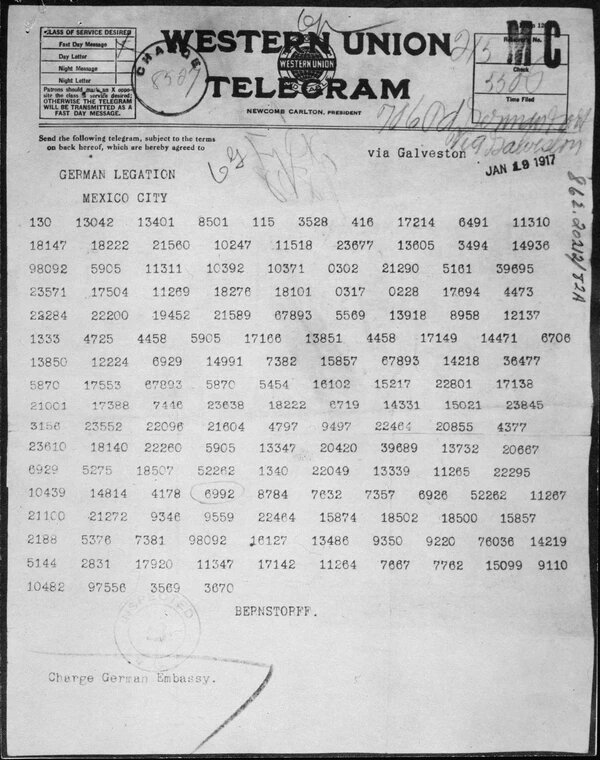 CLASS OF SERVICE DESIRED
Fast Day Message
Day Letter
Night Message
Night Letter
Patrons should mark an X oppo-
site the class of service desired;
OTHERWISE THE TELEGRAM
WILL BE TRANSMITTED AS A
FAST DAY MESSAGE.
CHARGE
WESTERN UNION
WESTERN UNION
TELEGRAM
NEWCOMB CARLTON, PRESIDENT
M C
Receiver's No.
Check
Time Filed
Send the following telegram, subject to the terms
on back hereof, which are hereby agreed to
via Galveston
JAN 19 1917
GERMAN LEGATION
MEXICO CITY
130 13042 13401 8501 115 3528 416 17214 6491 11310
18147 18222 21560 10247 11518 23677 13605 3494 14936
98092 5905 11311 10392 10371 0302 21290 5161 39695
23571 17504 11269 18276 18101 0317 0228 17694 4473
22284 22200 19452 21589 67893 5569 13918 8958 12137
1333 4725 4458 5905 17166 13851 4458 17149 14471 6706
13850 12224 6929 14991 7382 15857 67893 14218 36477
5870 17553 67893 5870 5454 16102 15217 22801 17138
21001 17388 7446 23638 18222 6719 14331 15021 23845
3156 23552 22096 21604 4797 9497 22464 20855 4377
23610 18140 22260 5905 13347 20420 39689 13732 20667
6929 5275 18507 52262 1340 22049 13339 11265 22295
10439 14814 4178 6992 8784 7632 7357 6926 52262 11267
21100 21272 9346 9559 22464 15874 18502 18500 15857
2188 5376 7381 98092 16127 13486 9350 9220 76036 14219
5144 2831 17920 11347 17142 11264 7667 7762 15099 9110
10482 97556 3569 3670
BERNSTORFF.
Charge German Embassy.
862.20212/82A